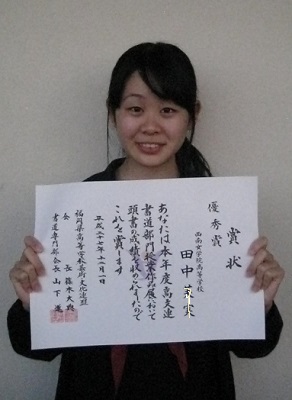 賞状
優秀賞
西南女学院高等学校
田中
あなたは本年度高文連
書道部門
頭書の成績を収められましたので
これを賞します
平成二十七年十二月一日
福岡県高等学校芸術文化連盟
会長
書道専門部会長 山下